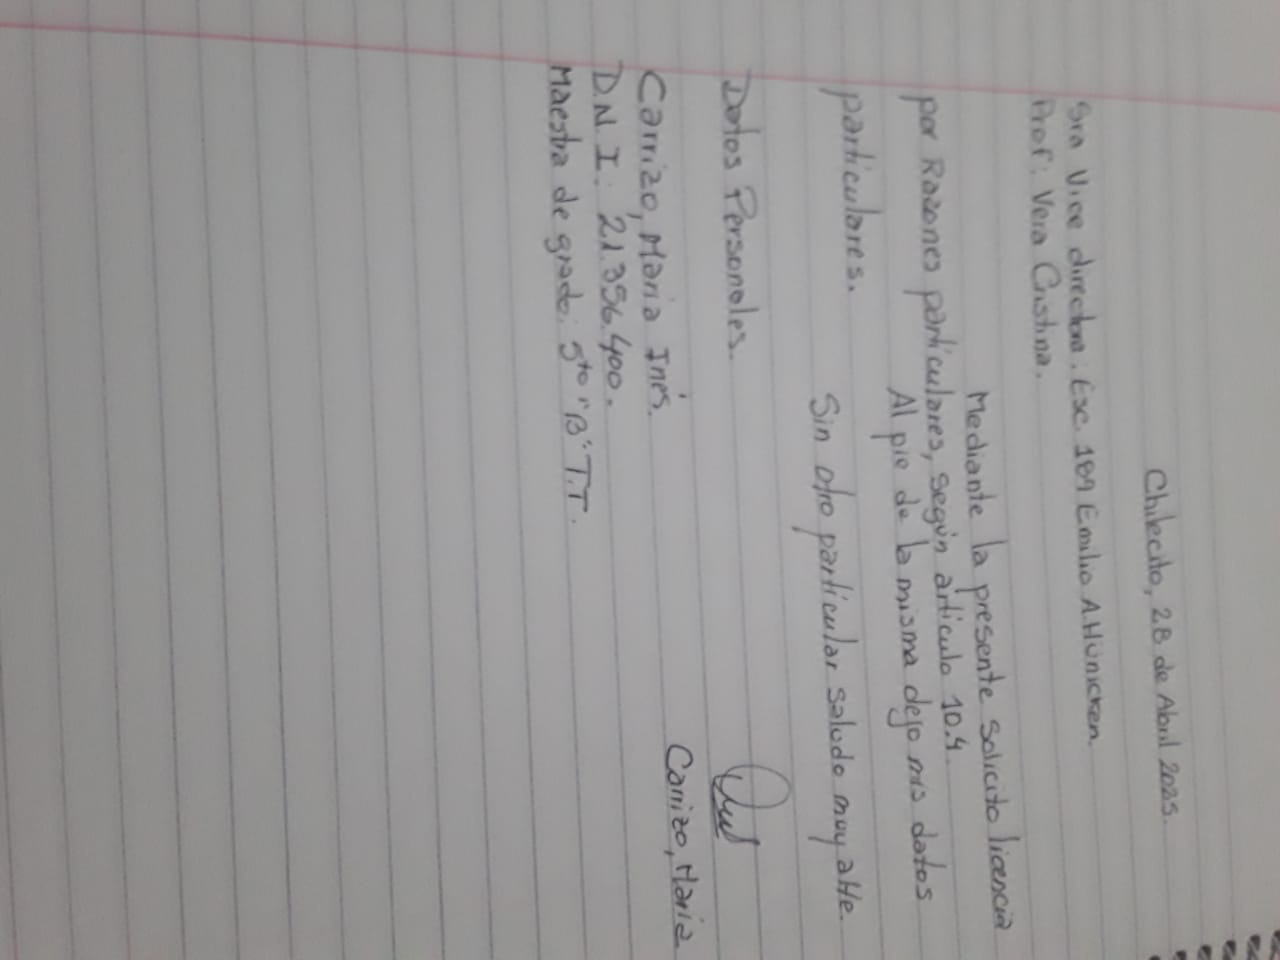 Chilecito, 28 de Abril 2025.
Sra Vice directora: Esc. 189 Emilio A. Hünicken.
Prof: Vera Cristina.
Mediante la presente solicito licencia
por Razones particulares, según artículo 10.4.
Al pie de la misma dejo mis datos
particulares.
Sin otro particular saludo muy atte.
Datos Personales.
Carrizo, Maria Inés.
D.N.I: 21.356.400.
Maestra de grado: 5to "B" T.T.
Carrizo, Maria